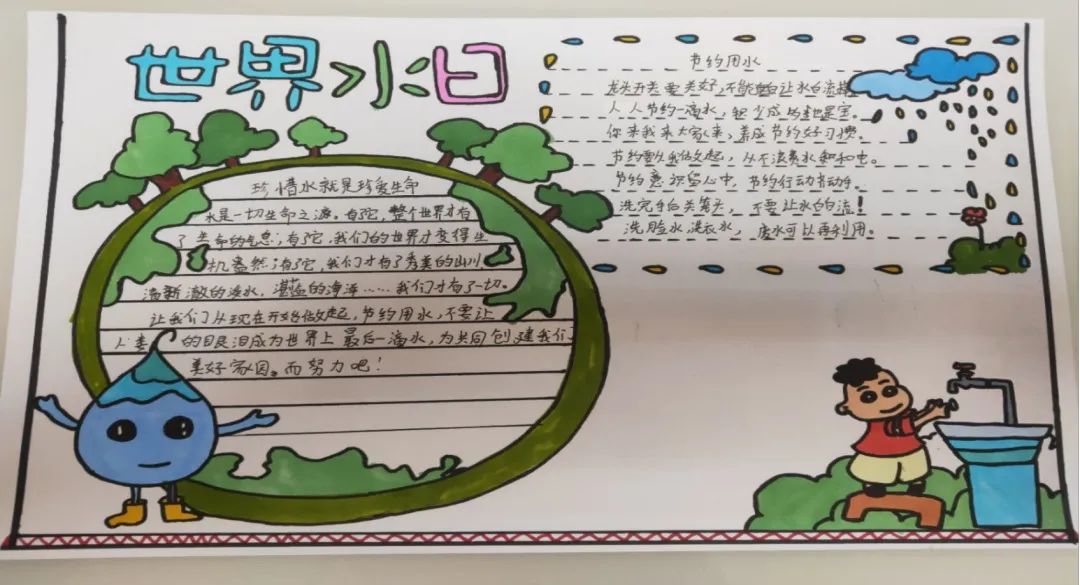 世界水日
珍惜水就是珍爱生命
水是一切生命之源。有它，整个世界才有
了生命的气息；有了它，我们的世界才变得生
机盎然；有了它，我们才有了秀美的山川，
清新澈的淡水，湛蓝的海洋……我们才有了一切。
让我们从现在开始做起，节约用水，不要让
人类的眼泪成为世界上最后一滴水，为共同创建我们
美好家园。而努力吧！
节约用水
龙头开关要关好，不能白白让水白流掉
人人节约一滴水，积少成多就是宝。
你来我来大家来，养成节约好习惯。
节约要从我做起，从不浪费水和电。
节约意识留心中，节约行动着动手。
洗完手白关笼头，不要让水白白流！
洗脸水洗衣水，废水可以再利用。